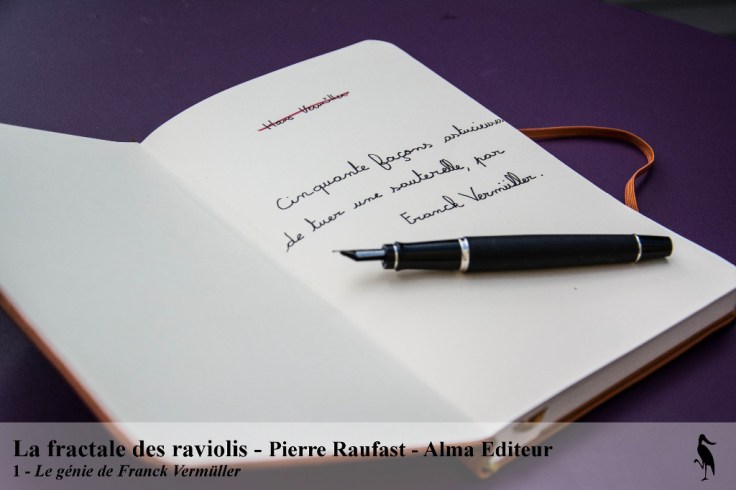 Hans Vermüller
Cinquante façons astucieuses
de tuer une sauterelle, par
Franck Vermüller.
La fractale des raviolis - Pierre Raufast - Alma Editeur
1 - Le génie de Franck Vermüller